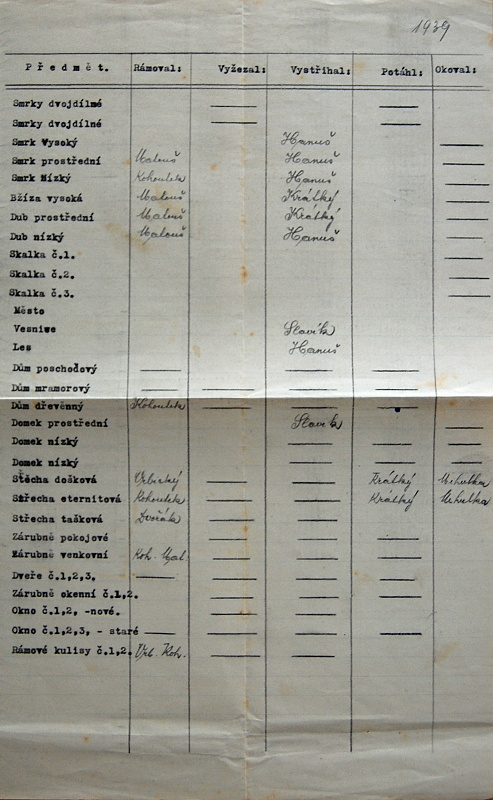 1939
Předmět. Rámoval: Vyžezal: Vystřihal: Potáhl: Okoval:
Smrky dvojdílné
Smrky dvojdílné
Smrk Vysoký Hanuš
Smrk prostřední Malouš Hanuš
Smrk Nízký Kohoutek Hanuš
Bžíza vysoká Malouš Krátký
Dub prostřední Malouš Krátký
Dub nízký Malouš Hanuš
Skalka č.1.
Skalka č.2.
Skalka č.3.
Město
Vesnice Slavík
Les Hanuš
Dům poschodový
Dům mramorový
Dům dřevěnný Kohoutek
Domek prostřední Slavík
Domek nízký
Domek nízký
Stěcha došková Vrbický Krátký
Střecha eternitová Kohoutek Krátký
Střecha tašková Dvořák
Zárubně pokojové
Zárubně venkovní Koh. Mal.
Dveře č.1,2,3.
Zárubně okenní č.1,2.
Okno č.1,2, -nové.
Okno č.1,2,3, - staré
Rámové kulisy č.1,2. Vrb. Koh.